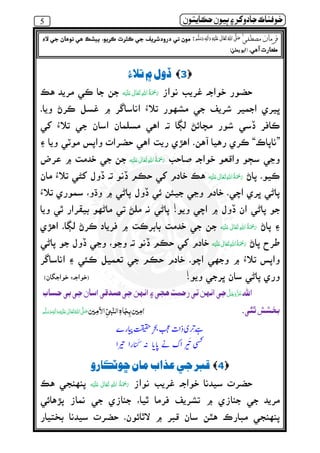 خوفناڪ جادوگر ۽ ٻيون حڪايتون 5
فرمانِ مصطفيٰ صَلَّى اللهُ تَعَالٰى عَلَيْهِ وَاٰلِهٖ وَسَلَّم: مون تي درود شريف جي ڪثرت ڪريو، بيشڪ هي توهان جي لاءِ
طهارت آهي. (ابو يعليٰ)
﴿3﴾ ڏول ۾ تلاءُ
حضور خواجه غريب نواز رَحْمَةُ اللهِ تَعَالٰى عَلَيْهِ جن جا ڪي مريد هڪ
ڀيري اجمير شريف جي مشهور تلاءُ اناساگر ۾ غسل ڪرڻ ويا.
ڪافر ڏسي شور مچائڻ لڳا ته اهي مسلمان اسان جي تلاءُ کي
”ناپاڪ“ ڪري رهيا آهن. اهڙي ريت اهي حضرات واپس موٽي ويا ۽
وڃي سڄو واقعو خواجه صاحب رَحْمَةُ اللهِ تَعَالٰى عَلَيْهِ جن جي خدمت ۾ عرض
ڪيو. پاڻ رَحْمَةُ اللهِ تَعَالٰى عَلَيْهِ هڪ خادم کي حڪم ڏنو ته ڏول کڻي تلاءُ مان
پاڻي ڀري اچي. خادم وڃي جيئن ئي ڏول پاڻي ۾ وڌو، سموري تلاءُ
جو پاڻي ان ڏول ۾ اچي ويو! پاڻي نه ملڻ تي ماڻهو بيقرار ٿي ويا
۽ پاڻ رَحْمَةُ اللهِ تَعَالٰى عَلَيْهِ جن جي خدمت بابرڪت ۾ فرياد ڪرڻ لڳا. اهڙي
طرح پاڻ رَحْمَةُ اللهِ تَعَالٰى عَلَيْهِ خادم کي حڪم ڏنو ته وڃو، وڃي ڏول جو پاڻي
واپس تلاءُ ۾ وجهي اچو. خادم حڪم جي تعميل ڪئي ۽ اناساگر
وري پاڻي سان ڀرجي ويو! (خواجه خواجگان)
الله عَزَّوَجَلَّ جي انهن تي رحمت هجي ۽ انهن جي صدقي اسان جي بي حساب
بخشش ٿئي. اٰمِين بِجَاہِ النَّبِيِّ الْاَمِين صَلَّى اللهُ تَعَالٰى عَلَيْهِ وَاٰلِهٖ وَسَلَّم
ہے تری ذات عجب بحرِ حقیقت پیارے
کسی تیراک نے پایا نہ کنارا تیرا
﴿4﴾ قبر جي عذاب مان ڇوٽڪارو
حضرت سيدنا خواجه غريب نواز رَحْمَةُ اللهِ تَعَالٰى عَلَيْهِ پنهنجي هڪ
مريد جي جنازي ۾ تشريف فرما ٿيا، جنازي جي نماز پڙهائي
پنهنجي مبارڪ هٿن سان قبر ۾ لاٿائون. حضرت سيدنا بختيار